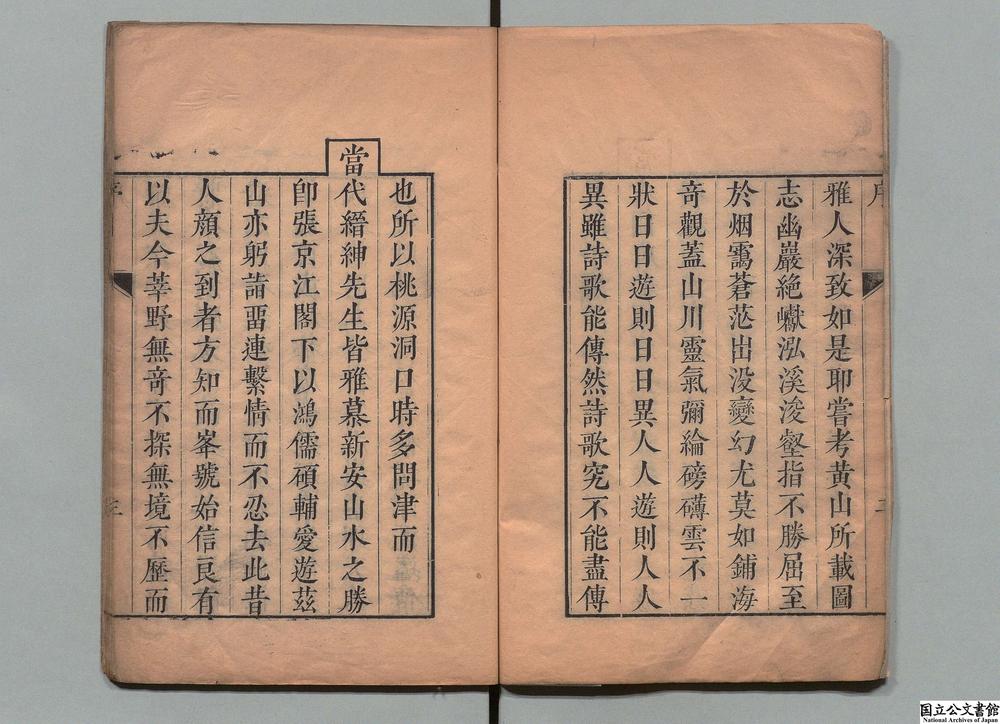 序
二
雅人深致如是耶嘗考黃山所載圖
志幽巖絶巘泓溪浚壑指不勝屈至
於烟靄蒼茫出没變幻尤莫如鋪海
竒觀蓋山川靈氣彌綸磅礴雲不一
狀日日遊則日日異人人遊則人人
異雖詩歌能傳然詩歌究不能盡傳
也所以桃源洞口時多問津而
當代縉紳先生皆雅慕新安山水之勝
卽張京江閣下以鴻儒碩輔愛遊茲
山亦躬請畱連繫情而不忍去此昔
人顏之到者方知而峯號始信良有
以夫今莘野無竒不探無境不歷而
序
三
国立公文書館
National Archives of Japan